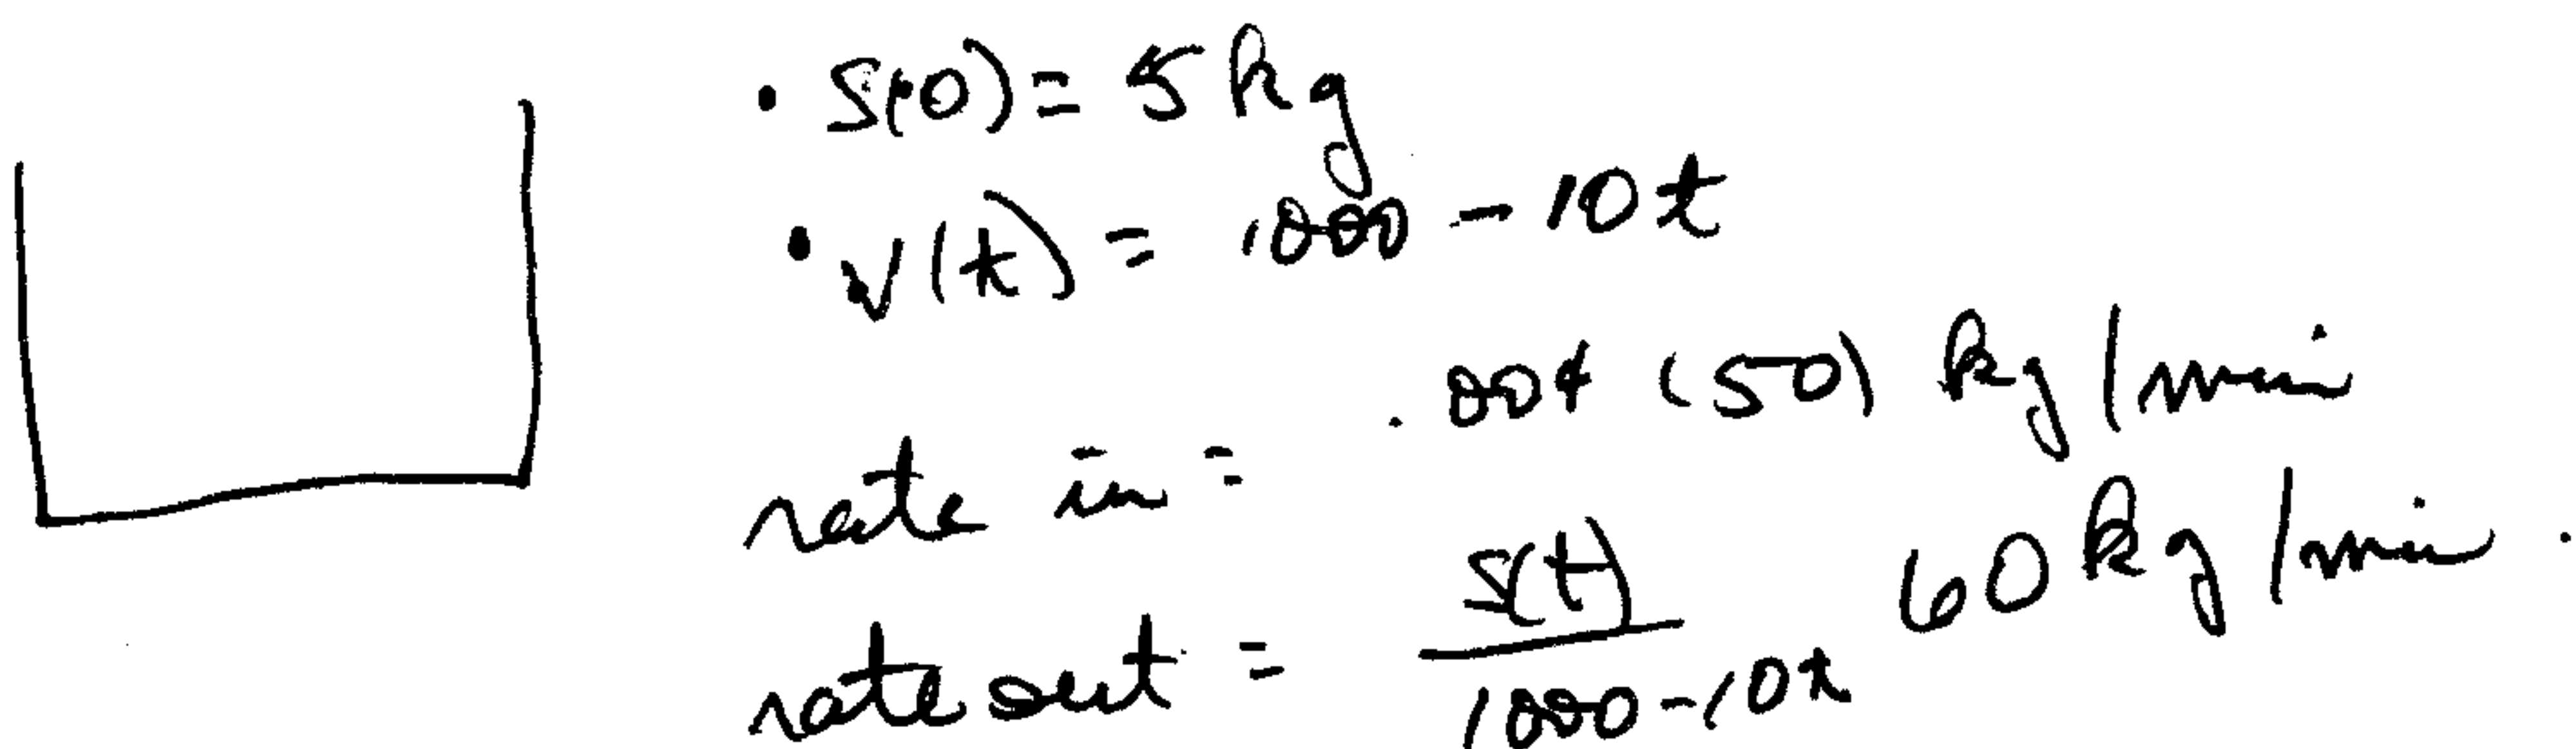 • S(0) = 5 kg
• V(t) = 1000 - 10t
rate in = .004 (50) kg/min
rate out = S(t)/(1000-10t) 60 kg/min.